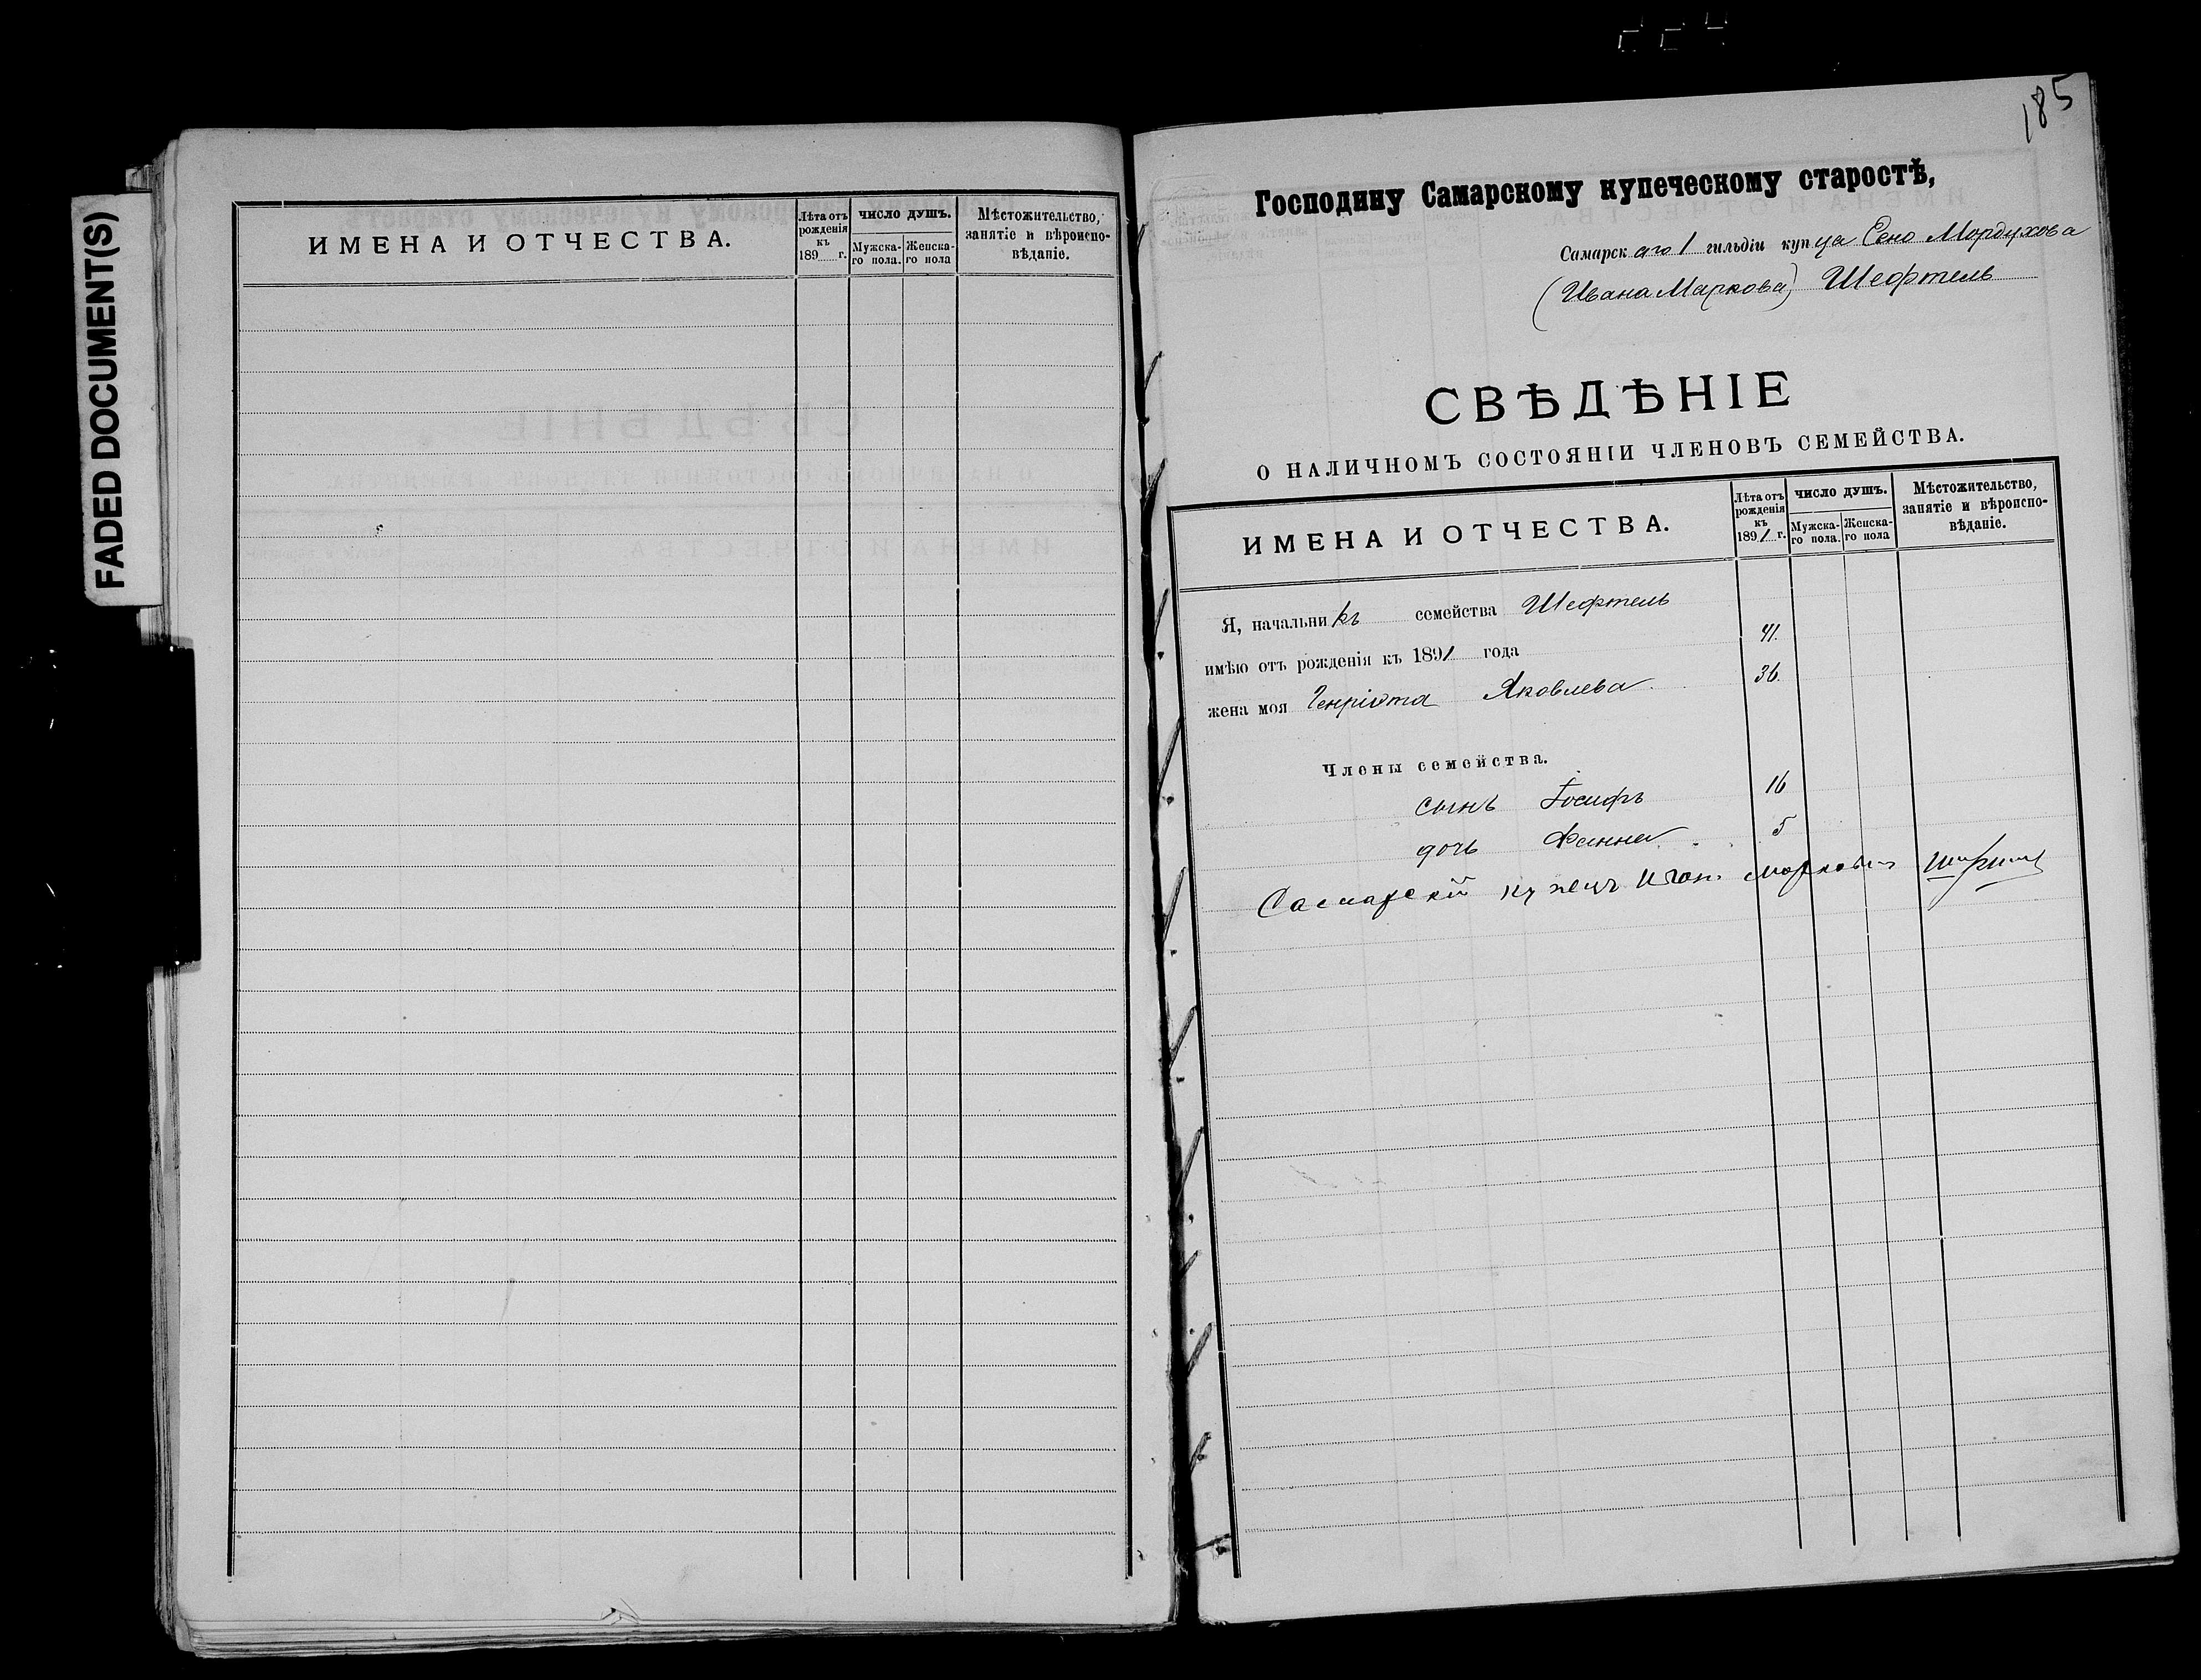 FADED DOCUMENT(S)
ИМЕНА И ОТЧЕСТВА.
Лѣта отъ рожденія къ 189 г.
ЧИСЛО ДУШЪ.
Мужска-го пола.
Женска-го пола
Мѣстожительство, занятіе и вѣроиспо-вѣданіе.
185
Господину Самарскому купеческому старостѣ,
Самарскаго 1 гильдіи купца Сено Мордухова
(Ивана Маркова) Шефтель
СВѢДѢНІЕ
О НАЛИЧНОМЪ СОСТОЯНІИ ЧЛЕНОВЪ СЕМЕЙСТВА.
ИМЕНА И ОТЧЕСТВА.
Лѣта отъ рожденія къ 1891 г.
ЧИСЛО ДУШЪ.
Мужска-го пола.
Женска-го пола
Мѣстожительство, занятіе и вѣроиспо-вѣданіе.
Я, начальникъ семейства Шефтель
имѣю отъ рожденія къ 1891 года 41.
жена моя Генріэта Яковлева. 36.
Члены семейства.
сынъ Іосифъ 16
дочь Фанна. 5
Самарскій купецъ Иван. Марковичъ